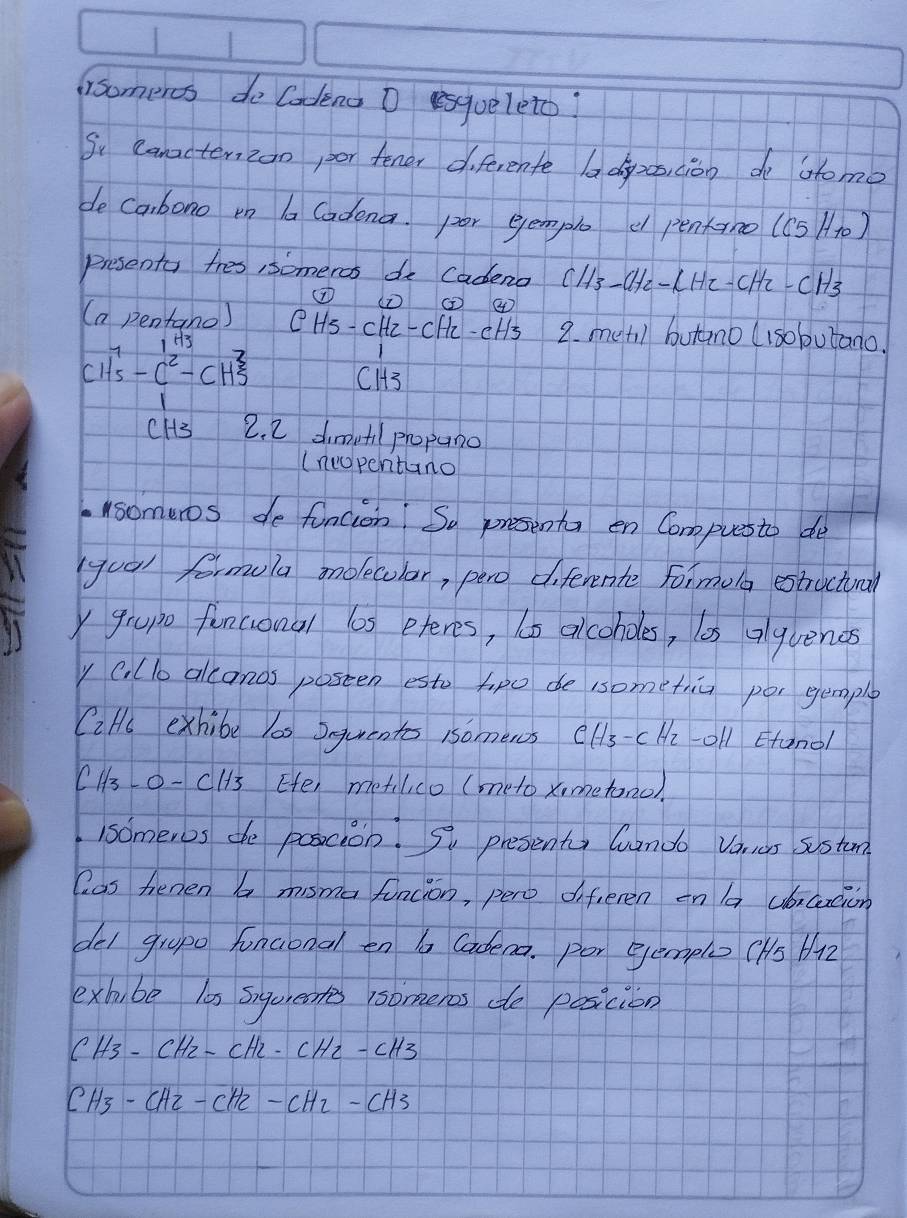 isomeros de Cadena O esqueleto:
Se Caracterizan por tener diferente la disposición de átomo
de Carbono en la Cadena. por ejemplo el pentano (C5 H10)
presenta tres isómeros de cadena CH3-CH2-CH2-CH2-CH3
(n pentano) ① CH3 - ② CH2 - ③ CH2 - ④ CH3 2-metil butano (isobutano.
CH3
CH3 1 - C 2 - CH3 3 CH3
CH3 2.2 dimetil propano
(neopentano
• isómeros de función: Se presenta en Compuesto de
igual fórmula molecular, pero diferente Fórmula estructural
y grupo funcional los eteres, los alcoholes, los alquenos
y Ciclo alcanos poseen esto tipo de isometría por gemplo
C2H6 exhibe los Siguientes isómeros CH3-CH2-OH Etanol
CH3-O-CH3 Eter metílico (meto ximetano).
• isómeros de posición: Se presenta Cuando Varias Sustan
Cias tienen la misma función, pero difieren en la ubicación
del grupo Funcional en la Cadena. por Ejemplo CH5 H12
exhibe los Siguientes isómeros de posición
CH3 - CH2 - CH2 - CH2 - CH3
CH3 - CH2 - CH2 - CH2 - CH3